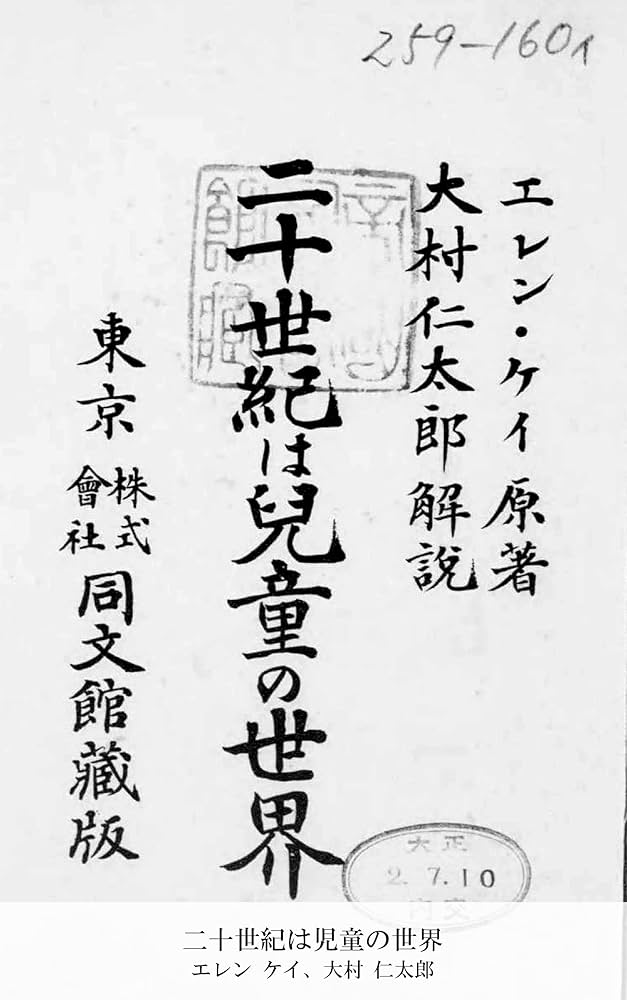 259-160
エレン・ケイ原著
大村仁太郎解説
二十世紀は兒童の世界
東京 株式會社 同文館藏版
大正
2.7.10
内交
二十世紀は児童の世界
エレン ケイ、大村 仁太郎